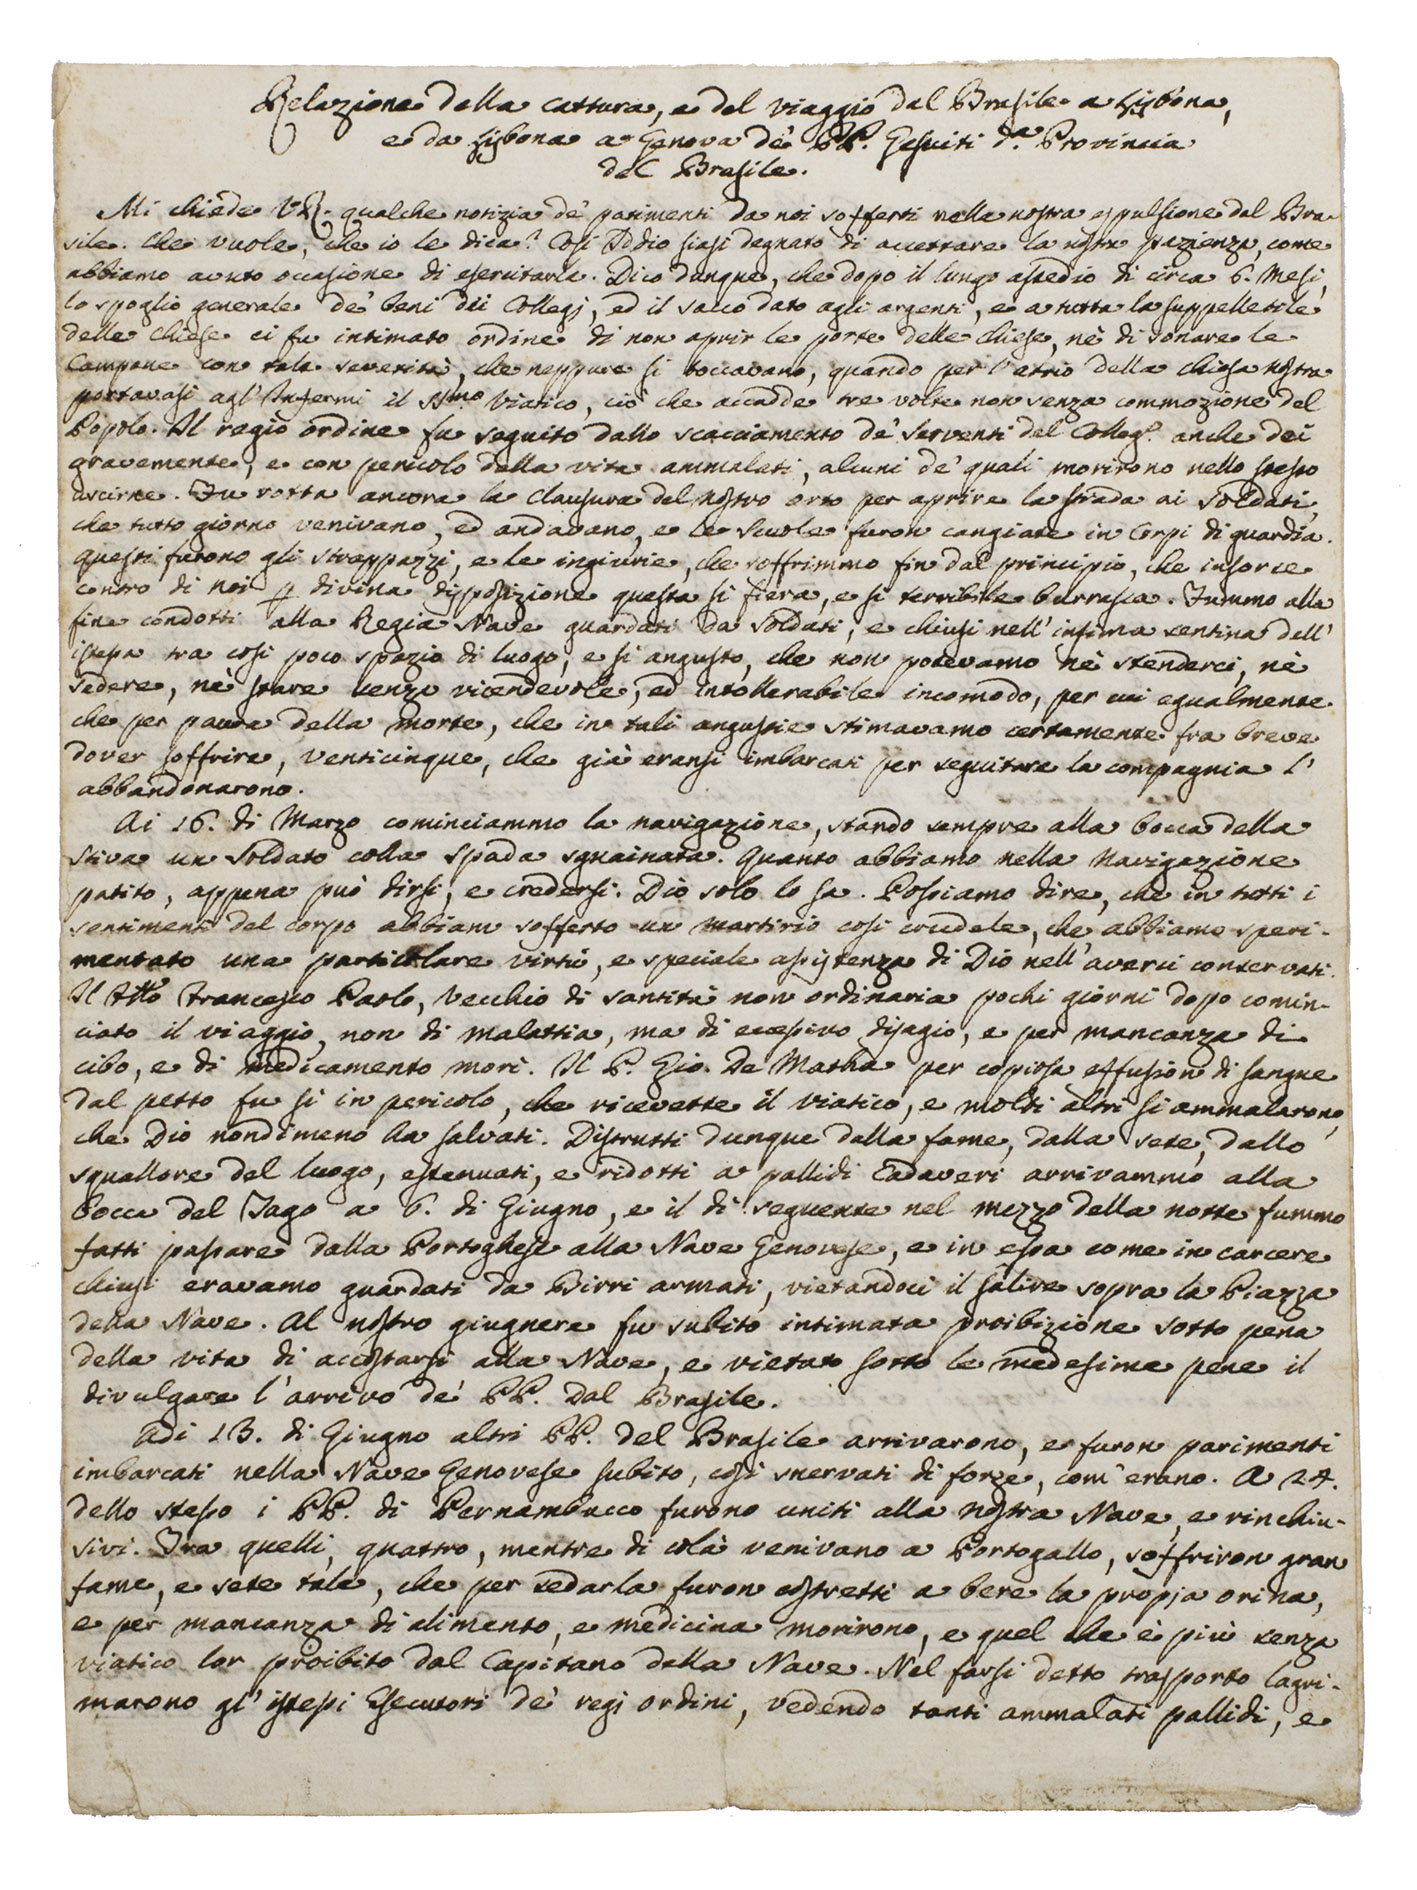 Relazione della cattura, e del viaggio dal Brasile a Lisbona,
e da Lisbona a Genova de' PP. Gesuiti d.a Provincia
del Brasile.
Mi chiede VR. qualche notizia de' patimenti da noi sofferti nella nostra espulsione dal Bra-
sile. Che vuole, che io le dica? Così Iddio siasi degnato di accettare la nostra pazienza, come
abbiamo avuto occasione di esercitarla. Dico dunque, che dopo il lungo assedio di circa 6. Mesi,
lo spoglio generale de' beni dei Collegj, ed il sacco dato agli argenti, e a tutta la suppelletile
delle Chiese ci fu intimato ordine di non aprir le porte delle chiese, nè di sonare le
Campane con tale severità, che neppure si toccavano, quando per l'atrio della chiesa nostra
portavasi agl'Infermi il SS.mo Viatico, ciò che accadde tre volte non senza commozione del
Popolo. Il regio ordine fu seguito dallo scacciamento de' serventi del Colleg.o anche dei
gravemente, e con pericolo della vita ammalati, alcuni de' quali morirono nello stesso
uscirne. Fu rotta ancora la Clausura del nostro orto per aprire la strada ai Soldati,
che tutto giorno venivano, ed andavano, e le Scuole furon cangiate in Corpi di guardia.
questi furono gli strappazzi, e le ingiurie, che soffrimmo fin dal principio, che insorse
contro di noi p divina disposizione questa sì fiera, e sì terribile burrasca. Fummo alla
fine condotti alla Regia Nave guardati da Soldati, e chiusi nell'infima sentina dell'
istessa tra così poco spazio di luogo, e sì angusto, che non potevamo nè stenderci, nè
sedere, nè stare senza vicendevole, ed intollerabile incomodo, per cui egualmente
che per paura della morte, che in tali angustie stimavamo certamente fra breve
dover soffrire, venticinque, che già eransi imbarcati per seguitare la compagnia l'
abbandonarono.
Ai 16. di Marzo cominciammo la navigazione, stando sempre alla bocca della
stiva un Soldato colla spada sguainata. Quanto abbiamo nella Navigazione
patito, appena può dirsi, e credersi. Dio solo lo sa. Possiamo dire, che in tutti i
sentimenti del corpo abbiam sofferto un martirio così crudele, che abbiamo speri-
mentato una particolare virtù, e speciale assistenza di Dio nell'averci conservati.
Il Francesco Paolo, Vecchio di santità non ordinaria pochi giorni dopo comin-
ciato il viaggio, non di malattia, ma di eccessivo disagio, e per mancanza di
cibo, e di medicamento morì. Il P. Gio. De Matha per copiosa effusion di sangue
dal petto fu sì in pericolo, che ricevette il viatico, e molti altri si ammalarono,
che Dio nondimeno ha salvati. Distrutti dunque dalla fame, dalla sete, dallo
squallore del luogo, estenuati, e ridotti a pallidi Cadaveri arrivammo alla
bocca del Tago a 6. di Giugno, e il dì seguente nel mezzo della notte fummo
fatti passare dalla Portoghese alla Nave Genovese, e in essa come in carcere
chiusi eravamo guardati da Birri armati, vietandoci il salire sopra la Piazza
della Nave. Al nostro giugnere fu subito intimata proibizione sotto pena
della vita di accostarsi alla Nave, e vietato sotto le medesime pene il
divulgare l'arrivo de' PP. dal Brasile.
Adì 13. di Giugno altri PP. del Brasile arrivarono, e furon parimenti
imbarcati nella Nave Genovese subito, così snervati di forze, com'erano. A 24.
dello stesso i PP. di Pernambucco furono uniti alla nostra Nave, e rinchiu-
sivi. Fra quelli, quattro, mentre di colà venivano a Portogallo, soffriron gran
fame, e sete tale, che per sedarla furon costretti a bere la propja orina,
e per mancanza di alimento, e medicina morirono, e quel che è più senza
viatico lor proibito dal Capitano della Nave. Nel farsi detto trasporto lagri-
marono gl'istessi Esecutori de' regj ordini, vedendo tanti ammalati pallidi, e